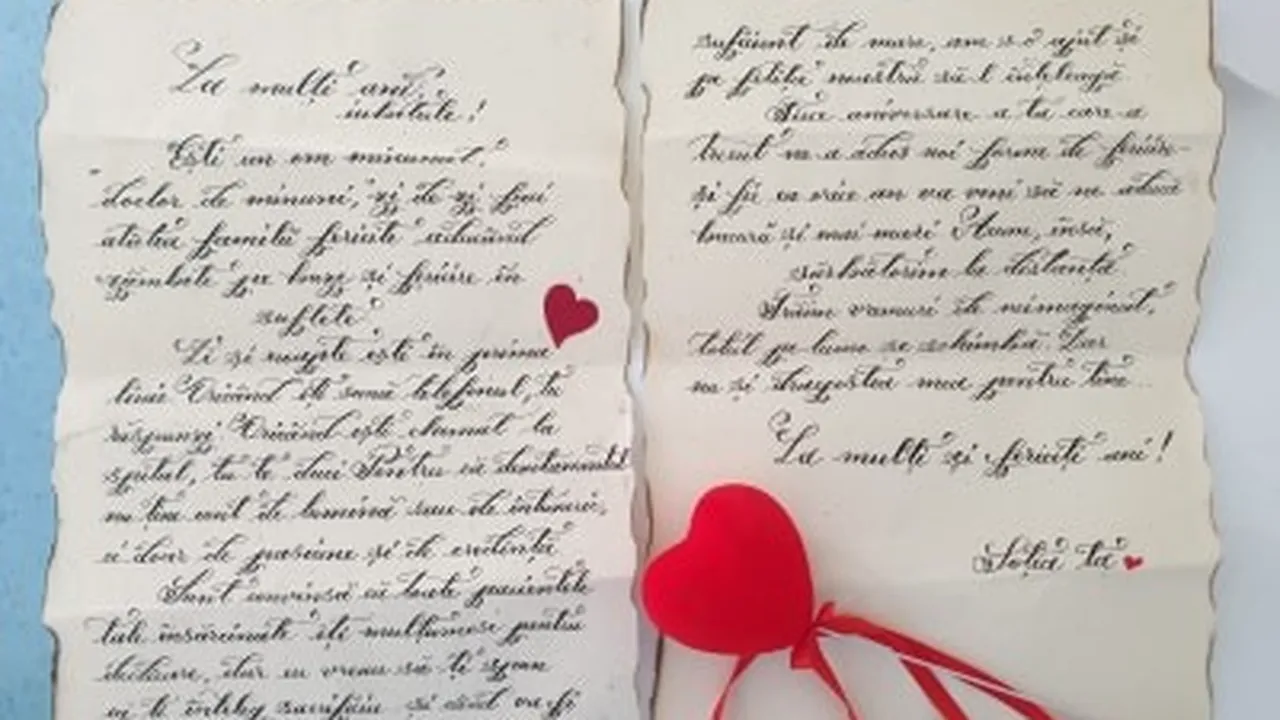 La mulți ani,
iubitule!
Ești un om minunat,
doctor de minuni, zi de zi faci
atâtea familii fericite aducând
zâmbete pe buze și fericire în
suflete
Zi și noapte ești în prima
linie Oricând îți sună telefonul, tu
răspunzi Oricând ești chemat la
spital, tu te duci Pentru că devotamentul
nu ține cont de lumină sau de întuneric,
ci doar de pasiune și de credință
Sunt convinsă că toate pacientele
tale însărcinate îți mulțumesc pentru
dedicare, dar eu vreau să îți spun
că îți înțeleg sacrificiu și când va fi
suficient de mare, am s-o ajut și
pe fetița noastră să-l înțeleagă
Fiece aniversare a ta care a
trecut ne-a adus noi forme de fericire
și fie ca orice an va veni să ne aducă
bucurii și mai mari Acum, însă,
sărbătorim la distanță
Trăim vremuri de neimaginat,
totul pe lume se schimbă. Dar
nu și dragostea mea pentru tine
La mulți și fericiți ani!
Soția ta